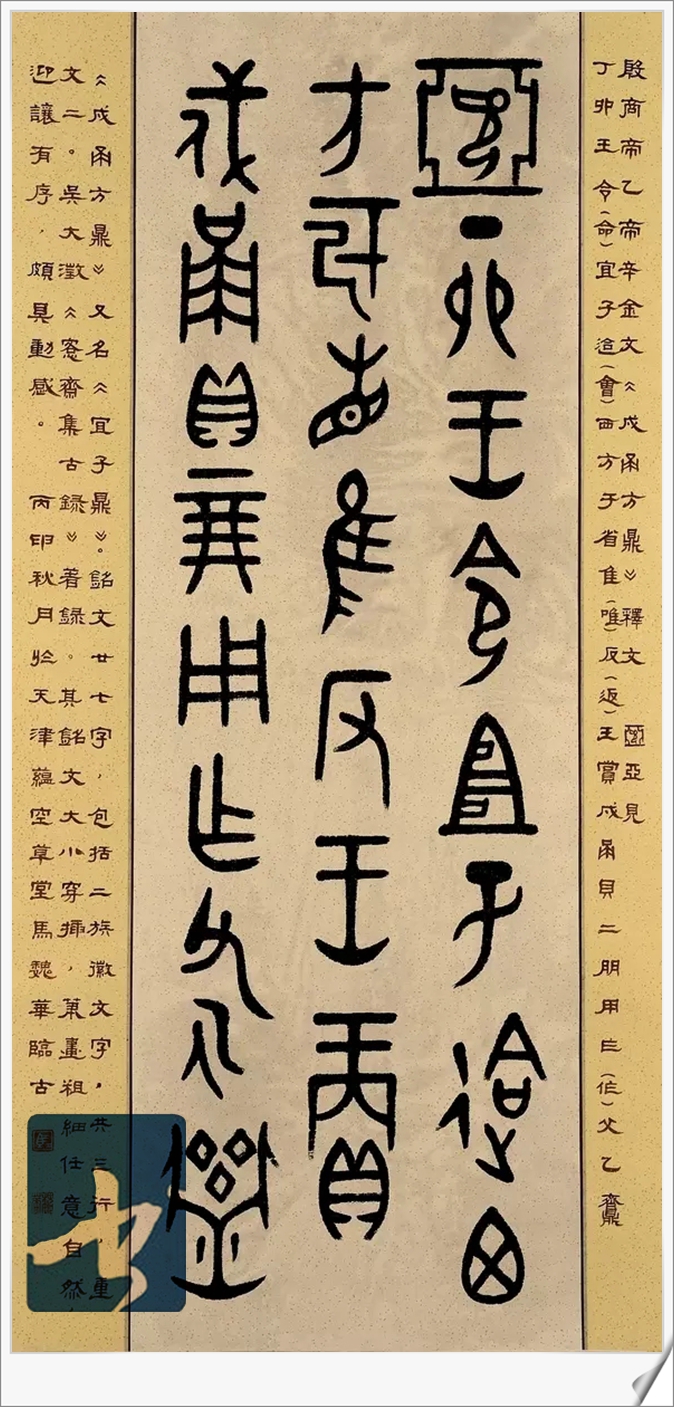 殷商帝乙帝辛金文《戍甬方鼎》釋文 亞見
丁卯王令(命)宜子迨(會)西方于省隹(唯)反(返)王賞戍甬貝二朋用乍(作)父乙
丁卯王令宜子迨西
方于省隹反王賞
戍甬貝二朋用乍父乙
《戍甬方鼎》又名《宜子鼎》。銘文廿七字，包括二族徽文字，共三行，重
文二。吳大澂《愙齋集古録》著録。其銘文大小穿插，筆畫粗細任意自然，
迎讓有序，頗具動感。丙申秋月於天津蘊空草堂馬魏華臨古
书